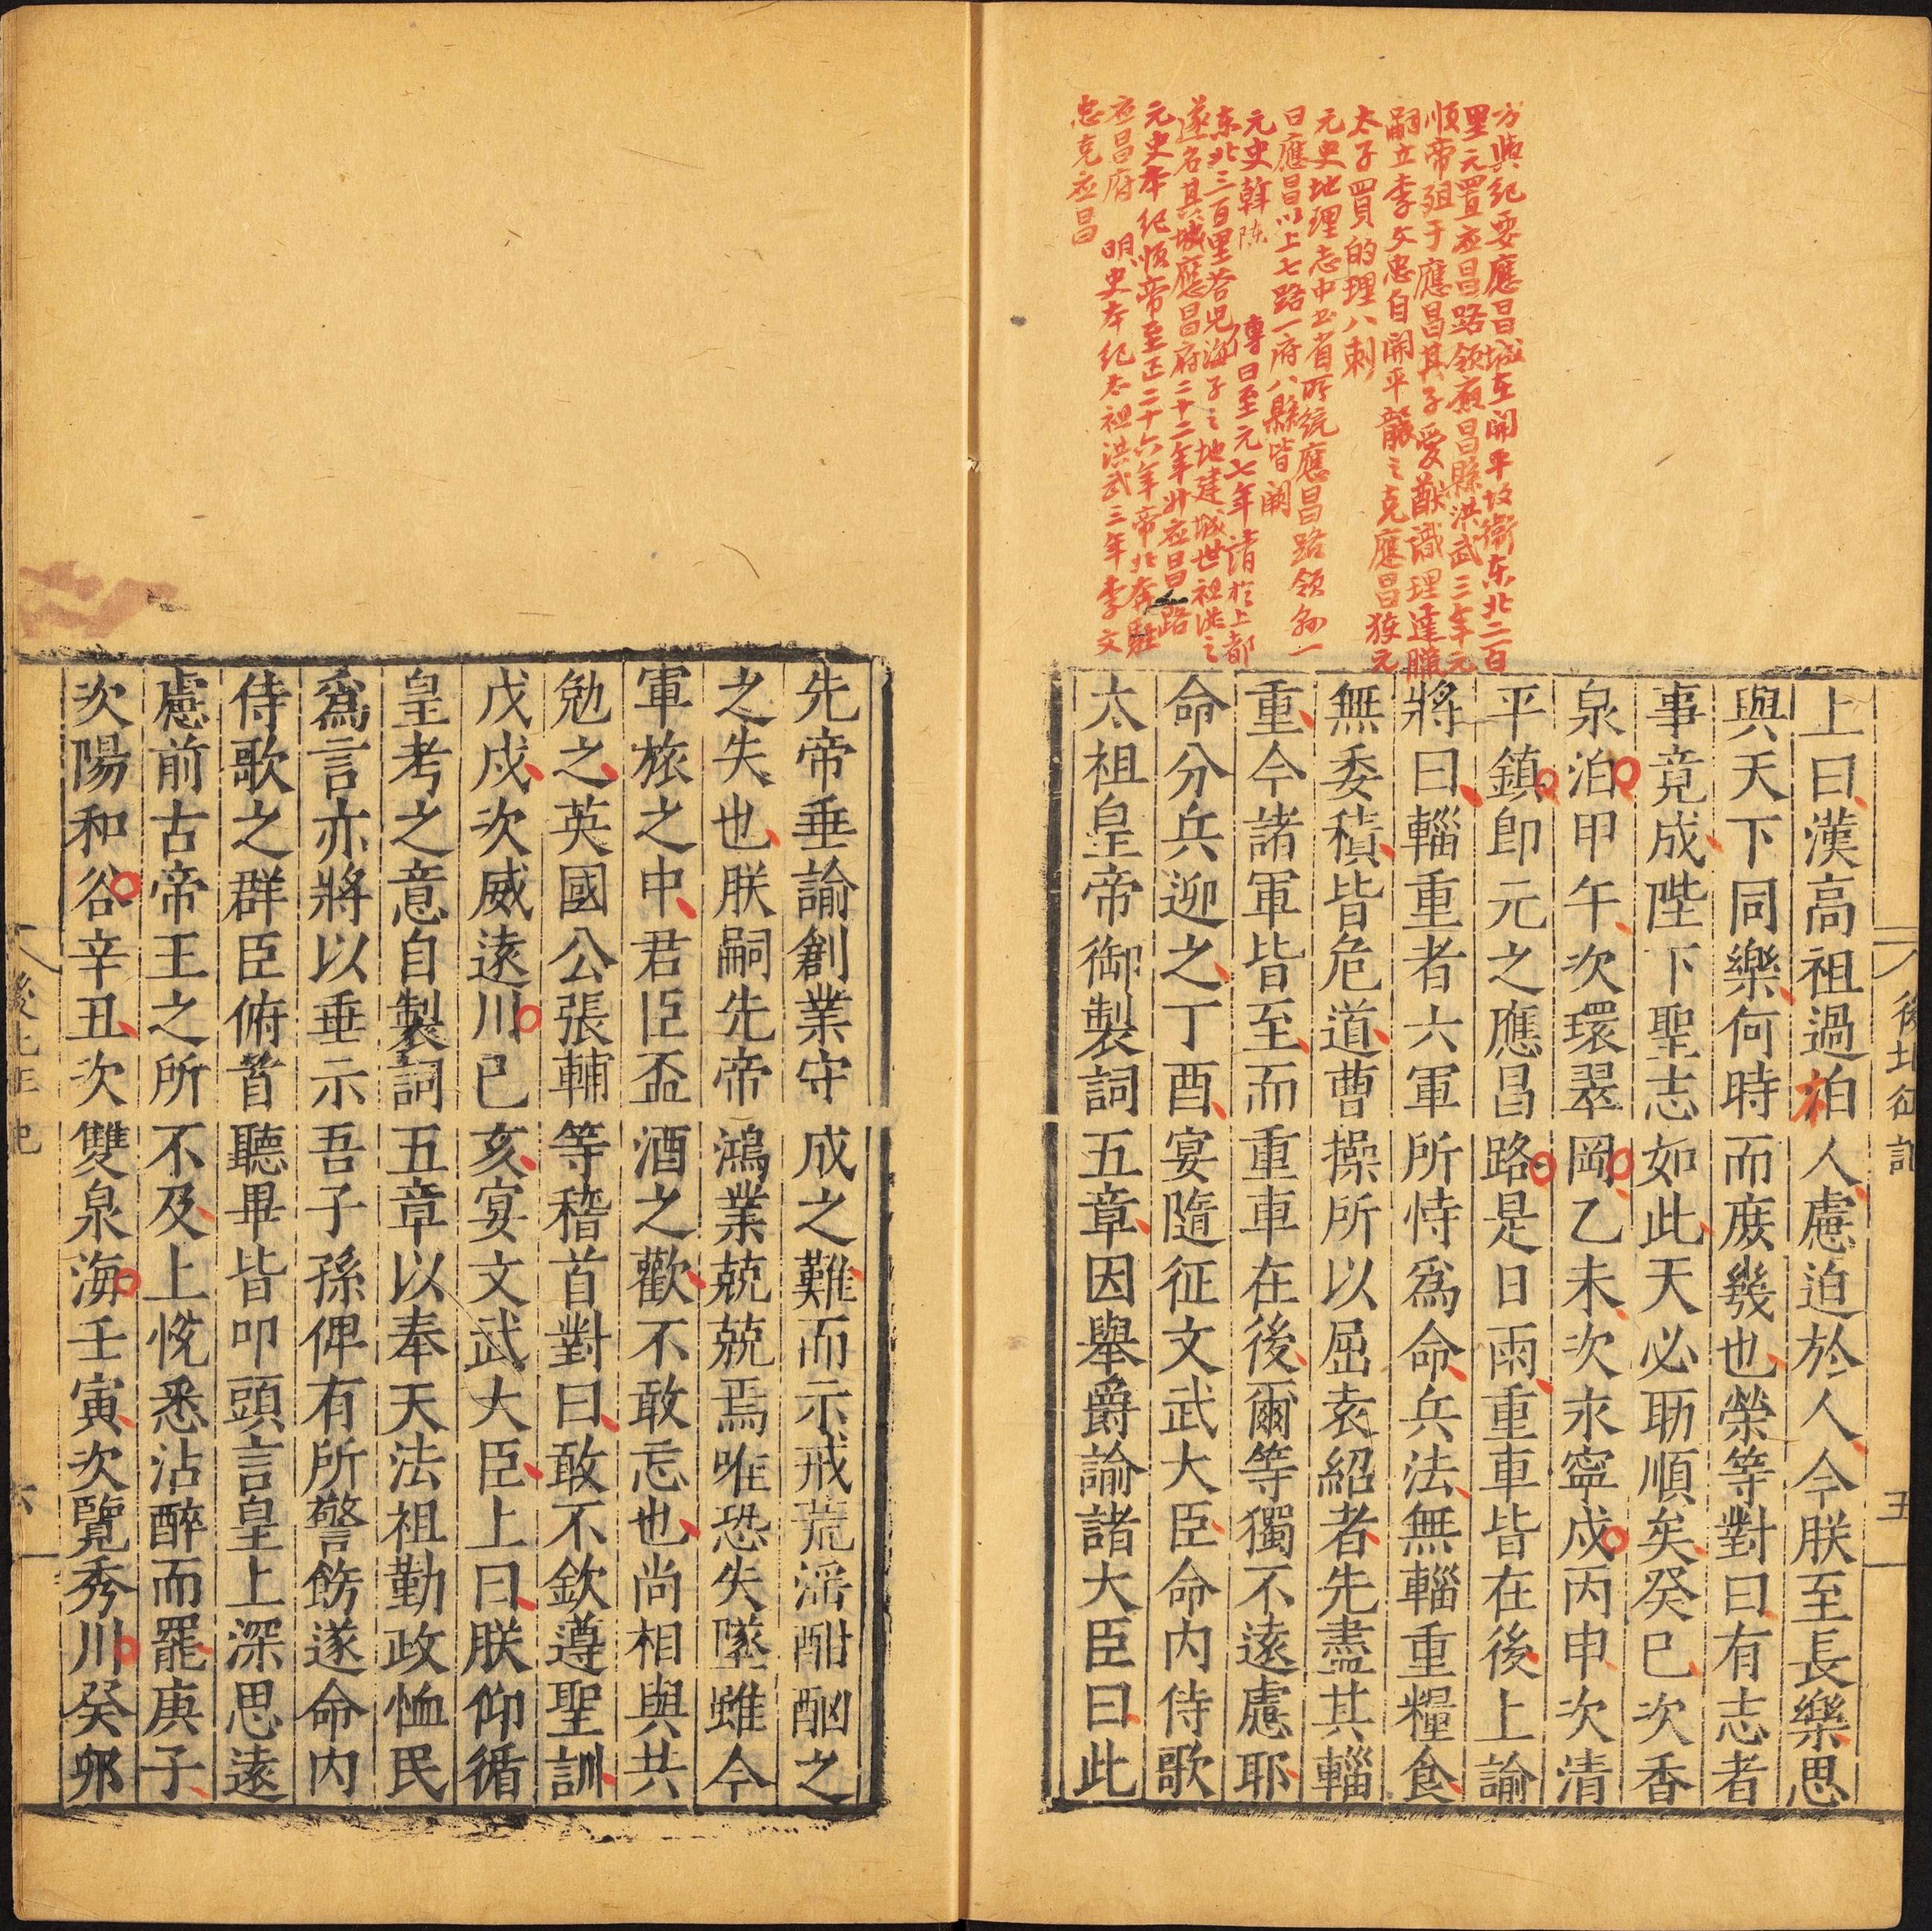 方輿紀要應昌城在開平故衛東北二百
里元置應昌路領應昌縣洪武三年元
順帝殂于應昌其子愛猷識理達臘
嗣立李文忠自開平襲之克應昌獲元
太子買的理八剌
元史地理志中書省所統應昌路領縣一
曰應昌以上七路一府八縣皆闕
元史斡陈傳曰至元七年請於上都
東北三百里荅兒海子之地建城世祖從之
遂名其城應昌府二十二年升應昌路
元史本紀順帝至正二十六年帝北奔駐
應昌府 明史本紀太祖洪武三年李文
忠克應昌
上曰漢高祖過柏人慮迫於人今朕至長樂思
與天下同樂何時而庻㡬也榮等對曰有志者
事竟成陛下聖志如此天必助順矣癸巳次香
泉泊甲午次環翠岡乙未次永寧戍丙申次清
平鎮即元之應昌路是日雨重車皆在後上諭
將曰輜重者六軍所恃為命兵法無輜重糧食
無委積皆危道曹操所以屈袁紹者先盡其輜
重今諸軍皆至而重車在後爾等獨不遠慮耶
命分兵迎之丁酉宴隨征文武大臣命内侍歌
太祖皇帝御製詞五章因舉爵諭諸大臣曰此
後北征記
五
先帝垂諭創業守成之難而示戒荒滛酣酗之
之失也朕嗣先帝鴻業兢兢焉唯恐失墜雖今
軍旅之中君臣盃酒之歡不敢忘也尚相與共
勉之英國公張輔等稽首對曰敢不欽遵聖訓
戊戍次威遠川已亥宴文武大臣上曰朕仰循
皇考之意自製詞五章以奉天法祖勤政恤民
爲言亦將以垂示吾子孫俾有所警飭遂命内
侍歌之群臣俯首聽畢皆叩頭言皇上深思遠
慮前古帝王之所不及上悅悉沾醉而罷庚子
次陽和谷辛丑次雙泉海壬寅次覽秀川癸夘
後北征記
六